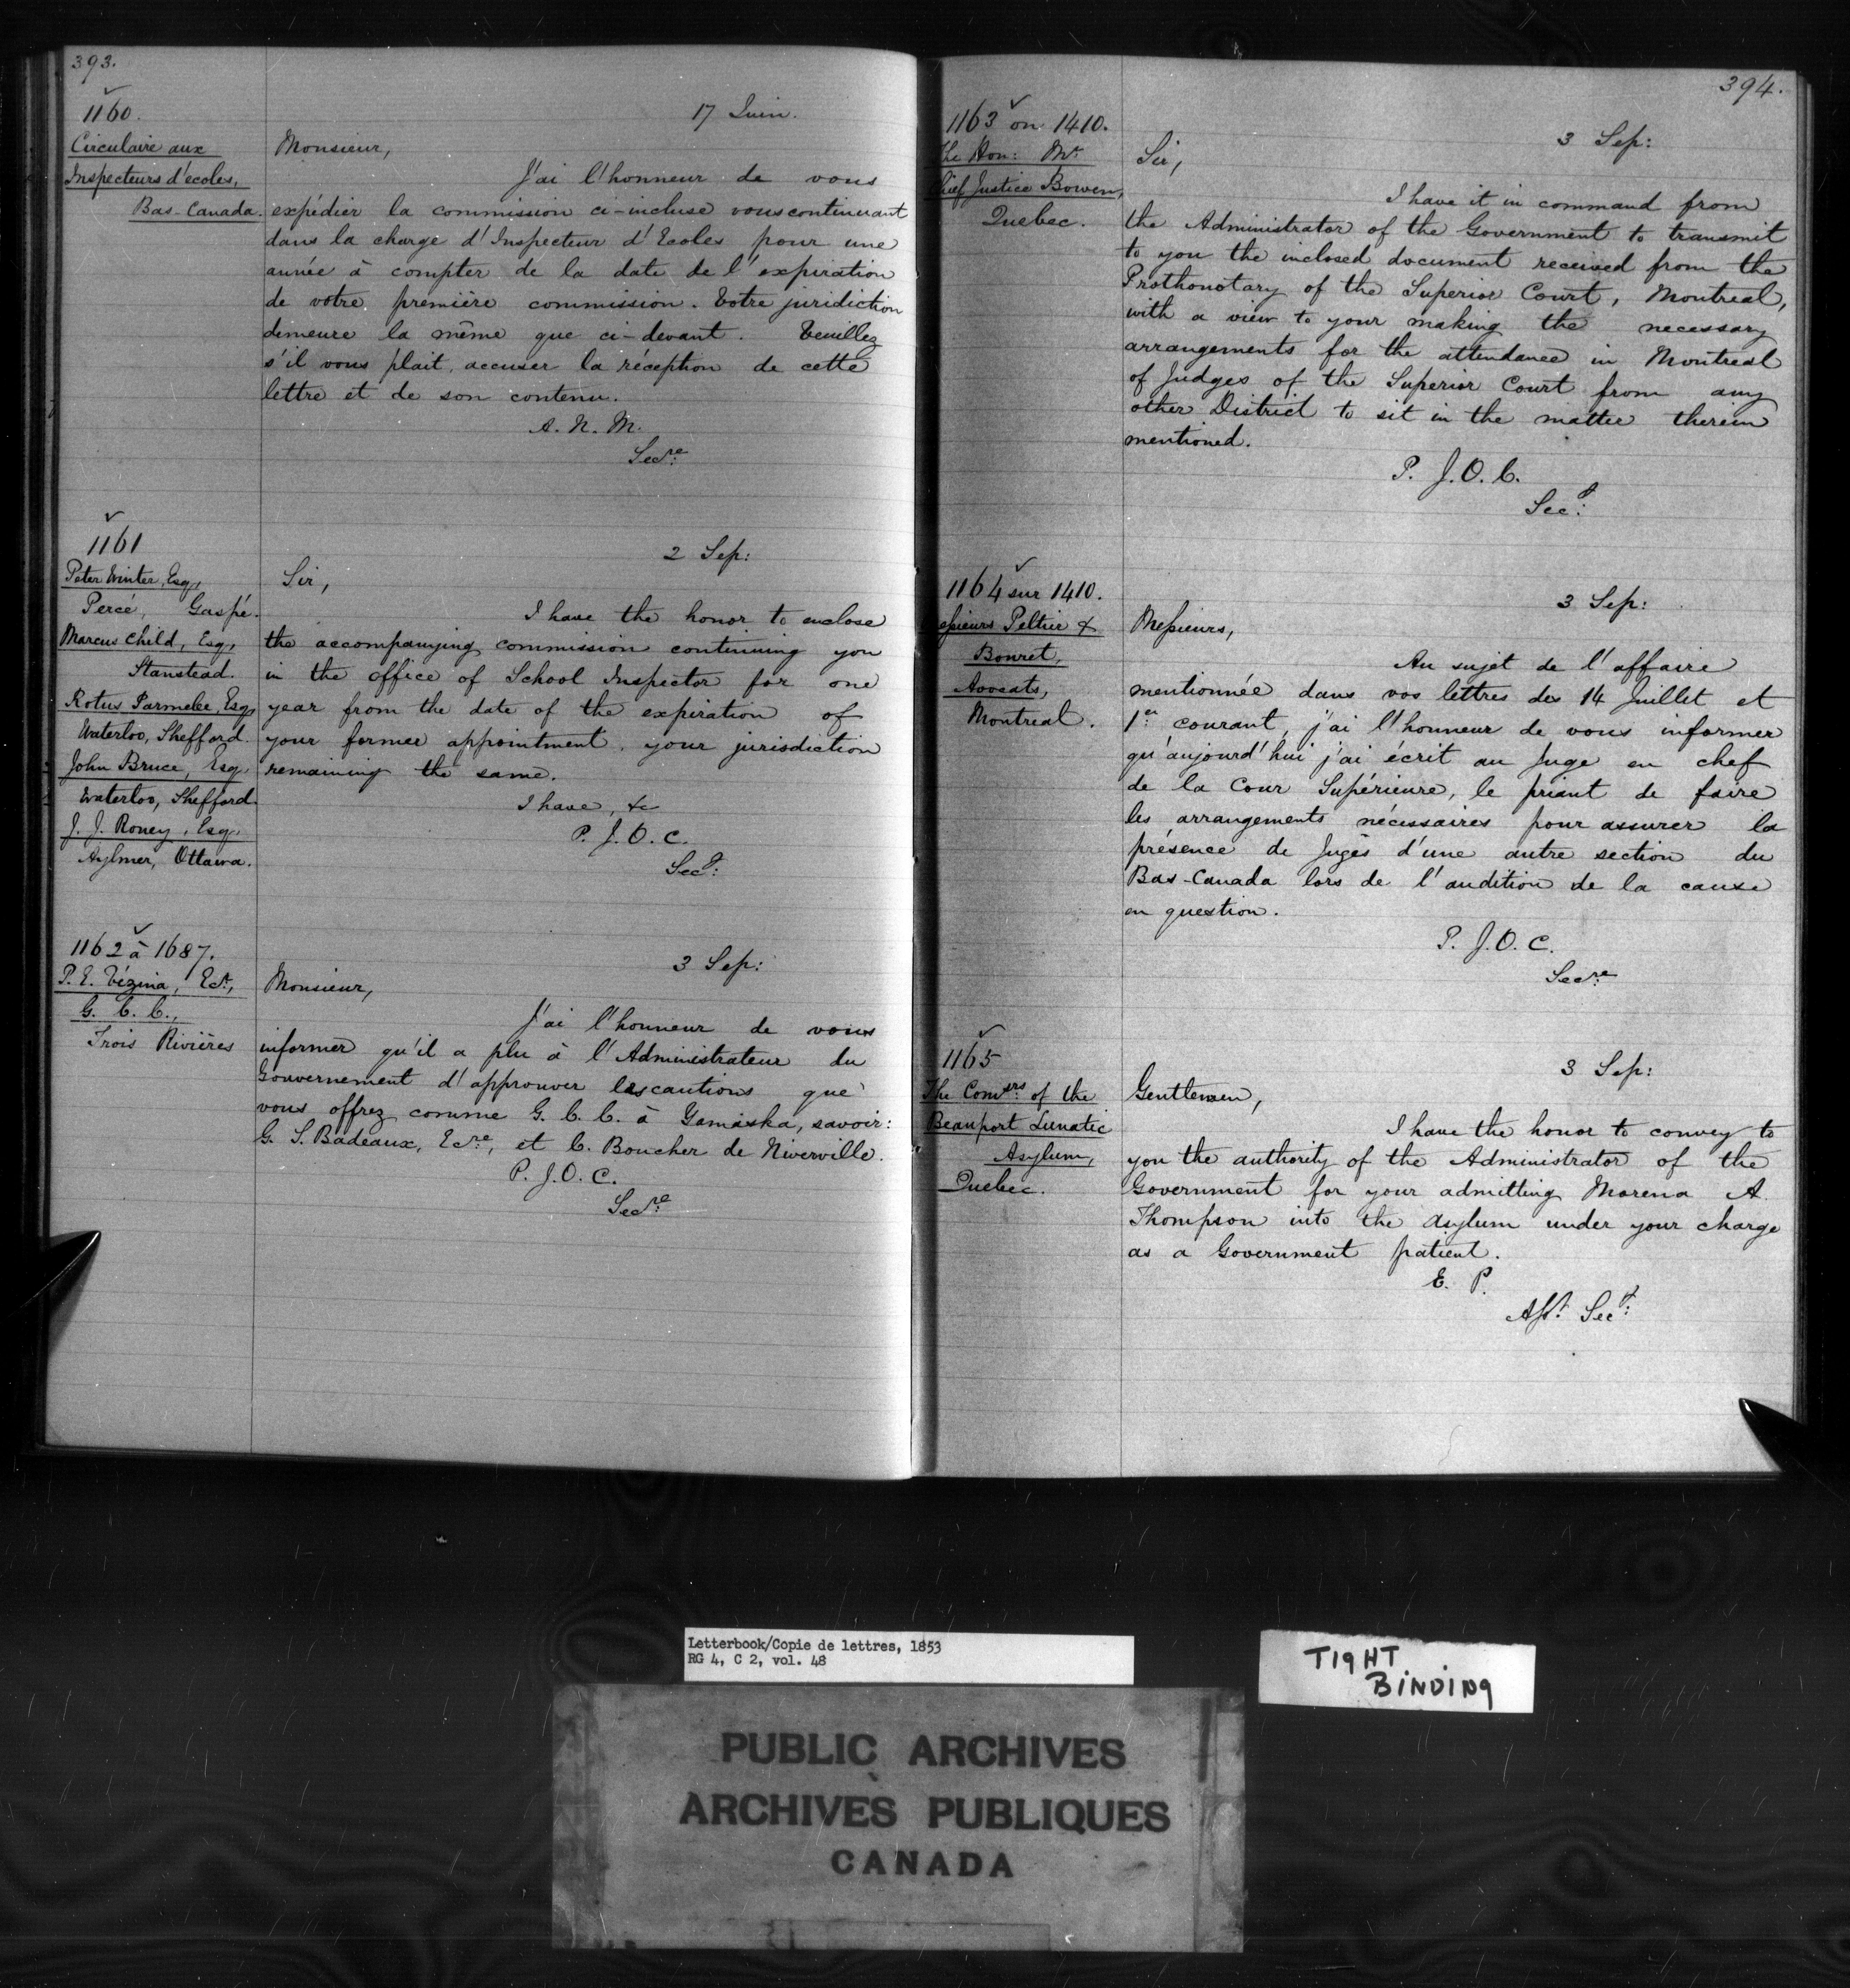 393.
1160.
Circulaire aux
Inspecteurs d'ecoles,
Bas-Canada.
17 Juin.
Monsieur,
J'ai l'honneur de vous
expédier la commission ci-incluse vous continuant
dans la charge d'Inspecteur d'Ecoles pour une
année à compter de la date de l'expiration
de votre première commission. Votre juridiction
demeure la même que ci-devant. Veuillez
s'il vous plait, accuser la réception de cette
lettre et de son contenu.
A. N. M.
Secre
1161
Peter Winter, Esq,
Percé, Gaspé.
Marcus Child, Esq,
Stanstead.
Rotus Parmelee, Esq,
Waterloo, Shefford.
John Bruce, Esq,
Waterloo, Shefford.
J. J. Roney, Esq,
Aylmer, Ottawa.
2 Sep:
Sir,
I have the honor to enclose
the accompanying commission continuing you
in the office of School Inspector for one
year from the date of the expiration of
your former appointment, your jurisdiction
remaining the same.
I have, &c
P. J. O. C.
Secy:
1162 à 1687.
P. E. Vézina, Ecr,
G. C. C.,
Trois Rivières
3 Sep:
Monsieur,
J'ai l'honneur de vous
informer qu'il a plu à l'Administrateur du
Gouvernement d'approuver les cautions que
vous offrez comme G. C. C. à Yamaska, savoir:
G. S. Badeaux, Ecre, et C. Boucher de Niverville.
P. J. O. C.
Secre
394.
1163 on 1410.
The Hon: Mr
Chief Justice Bowen,
Quebec.
3 Sep:
Sir,
I have it in command from
the Administrator of the Government to transmit
to you the inclosed document received from the
Prothonotary of the Superior Court, Montreal,
with a view to your making the necessary
arrangements for the attendance in Montreal
of Judges of the Superior Court from any
other District to sit in the matter therein
mentioned.
P. J. O. C.
Secy:
1164 sur 1410.
Messieurs Peltier &
Bouret,
Avocats,
Montreal.
3 Sep:
Messieurs,
Au sujet de l'affaire
mentionnée dans vos lettres des 14 Juillet et
1er courant, j'ai l'honneur de vous informer
qu'aujourd'hui j'ai écrit au Juge en chef
de la Cour Supérieure, le priant de faire
les arrangements nécessaires pour assurer la
présence de Juges d'une autre section du
Bas-Canada lors de l'audition de la cause
en question.
P. J. O. C.
Secre
1165
The Comrs: of the
Beauport Lunatic
Asylum,
Quebec.
3 Sep:
Gentlemen,
I have the honor to convey to
you the authority of the Administrator of the
Government for your admitting Morena A.
Thompson into the Asylum under your charge
as a Government patient.
E. P.
Asst. Secy:
Letterbook/Copie de lettres, 1853
RG 4, C 2, vol. 48
TIGHT
BINDING
PUBLIC ARCHIVES
ARCHIVES PUBLIQUES
CANADA